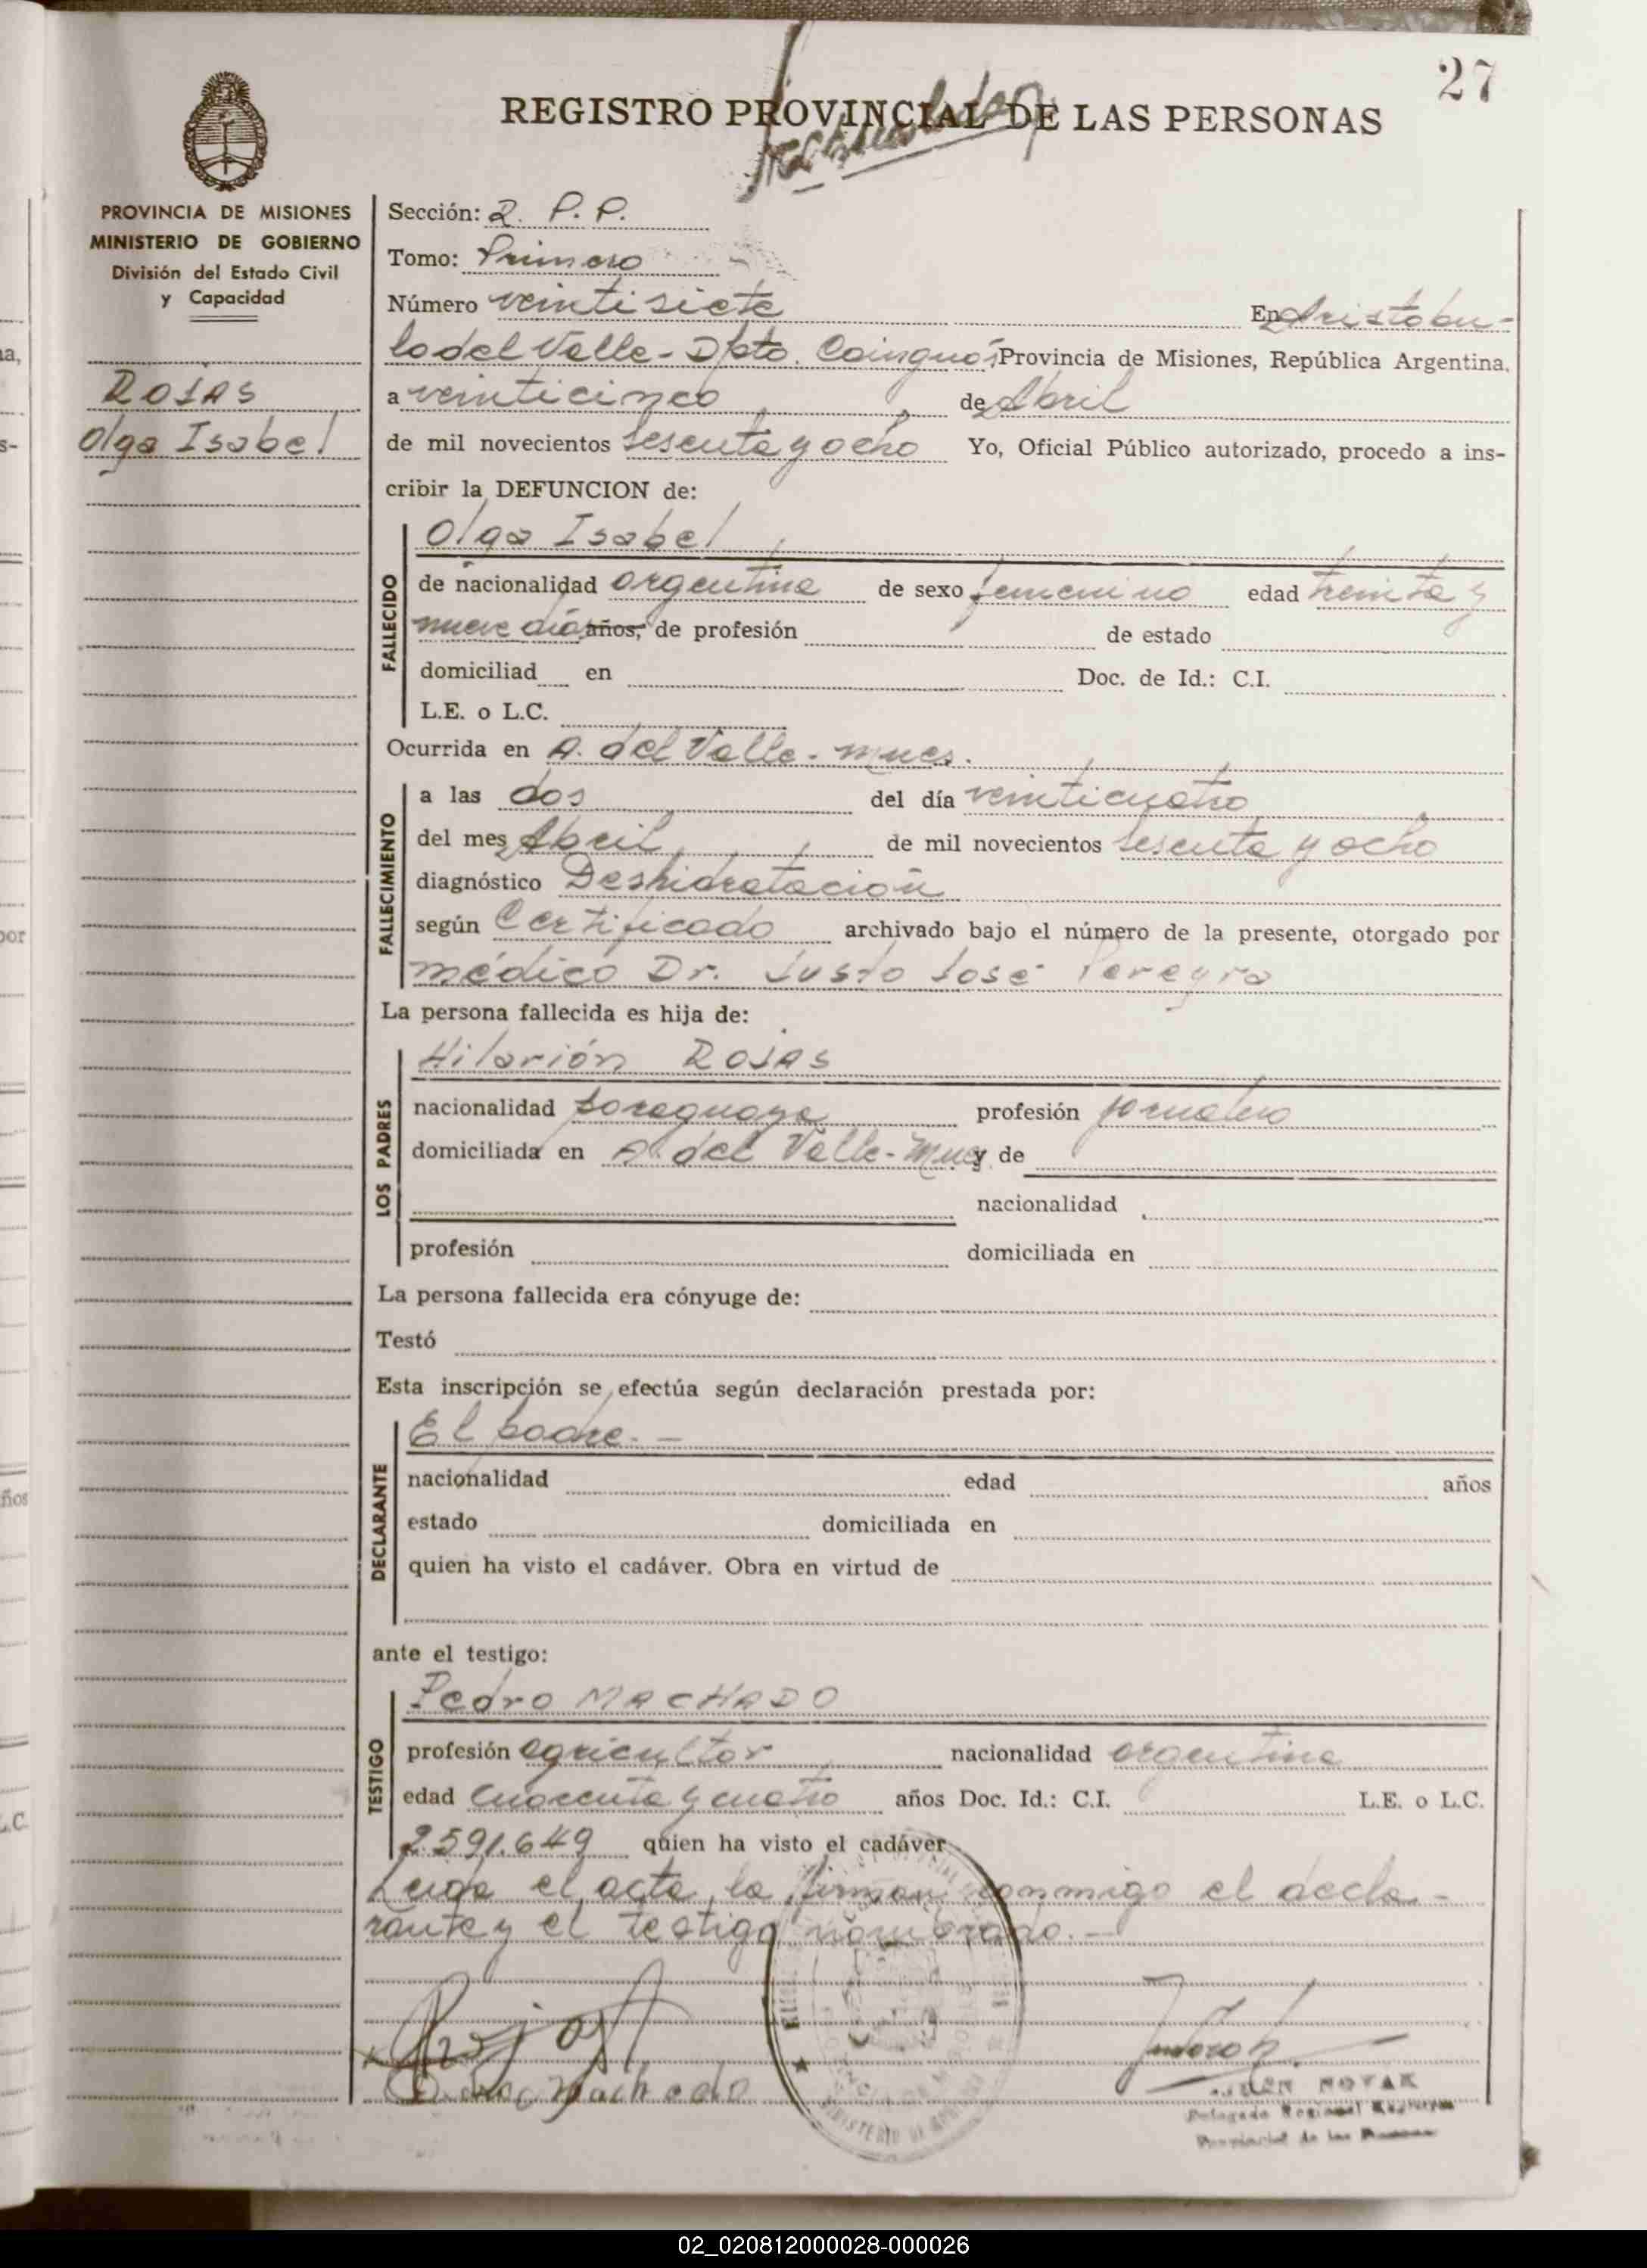 27
REGISTRO PROVINCIAL DE LAS PERSONAS
PROVINCIA DE MISIONES
MINISTERIO DE GOBIERNO
División del Estado Civil
y Capacidad
ROJAS
Olga Isabel
Sección: 2. P. P.
Tomo: Primero
Número veintisiete En Aristobu-
lo del Valle - Dpto. Cainguás Provincia de Misiones, República Argentina,
a veinticinco de Abril
de mil novecientos sesenta y ocho Yo, Oficial Público autorizado, procedo a ins-
cribir la DEFUNCION de:
FALLECIDO
Olga Isabel
de nacionalidad argentina de sexo femenino edad treinta y
nueve días años, de profesión de estado
domiciliad en Doc. de Id.: C.I.
L.E. o L.C.
Ocurrida en A. del Valle - Mnes.
FALLECIMIENTO
a las dos del día veinticuatro
del mes Abril de mil novecientos sesenta y ocho
diagnóstico Deshidratación
según Certificado archivado bajo el número de la presente, otorgado por
médico Dr. Justo José Pereyra
La persona fallecida es hija de:
LOS PADRES
Hilarión ROJAS
nacionalidad paraguaya profesión jornalero
domiciliada en A. del Valle - Mnes y de
nacionalidad
profesión domiciliada en
La persona fallecida era cónyuge de:
Testó
Esta inscripción se efectúa según declaración prestada por:
DECLARANTE
El padre. -
nacionalidad edad años
estado domiciliada en
quien ha visto el cadáver. Obra en virtud de
ante el testigo:
TESTIGO
Pedro MACHADO
profesión agricultor nacionalidad argentina
edad cuarenta y cuatro años Doc. Id.: C.I. L.E. o L.C.
2.591.649 quien ha visto el cadáver
Leída el acta, la firman conmigo el decla-
rante y el testigo nombrado. -
Pedro Machado
NOVAK
Delegado Regional Registro
Provincial de las Personas
02_020812000028-000026